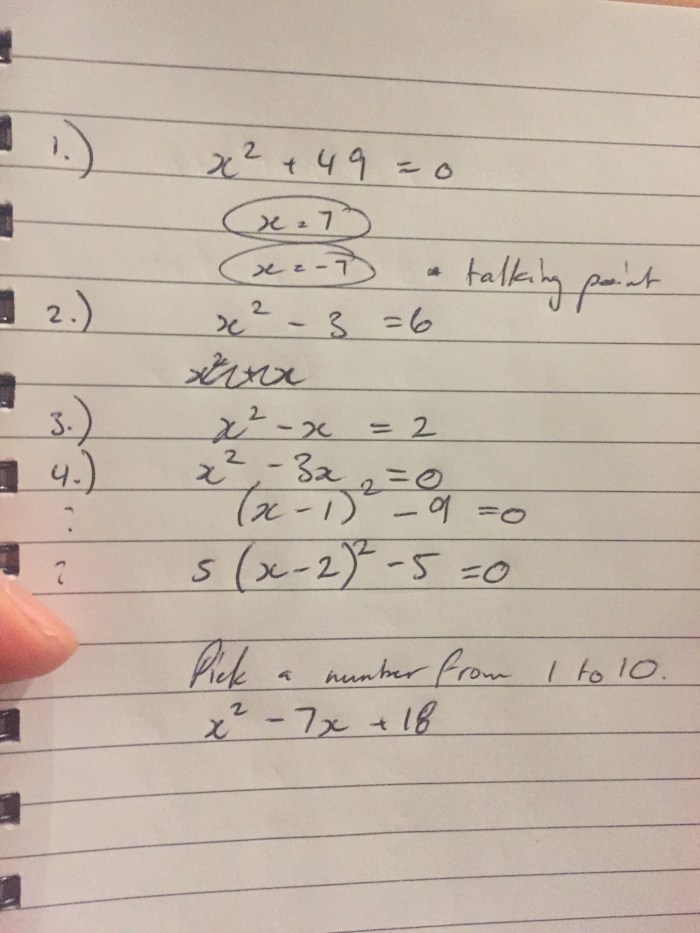 1.) x² + 49 = 0
x = 7
x = -7 • talking point
2.) x² - 3 = 6
3.) x² - x = 2
4.) x² - 3x = 0
? (x - 1)² - 9 = 0
? 5 (x - 2)² - 5 = 0
Pick a number from 1 to 10.
x² - 7x + 18